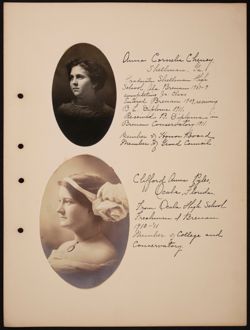 Anna Cornelia Cheney
Shellman, Ga.
Graduate Shellman High
School,
Entered Brenau 1909, receiving
B. L. Diploma 1911.
Received B. Diploma in
Brenau Conservatory 1911
Member of Honor Board
Member of Good Council
Clifford Anna Pyles,
Ocala, Florida.
From Ocala High School
Freshman of Brenau
1910-11
Member of College and
Conservatory.